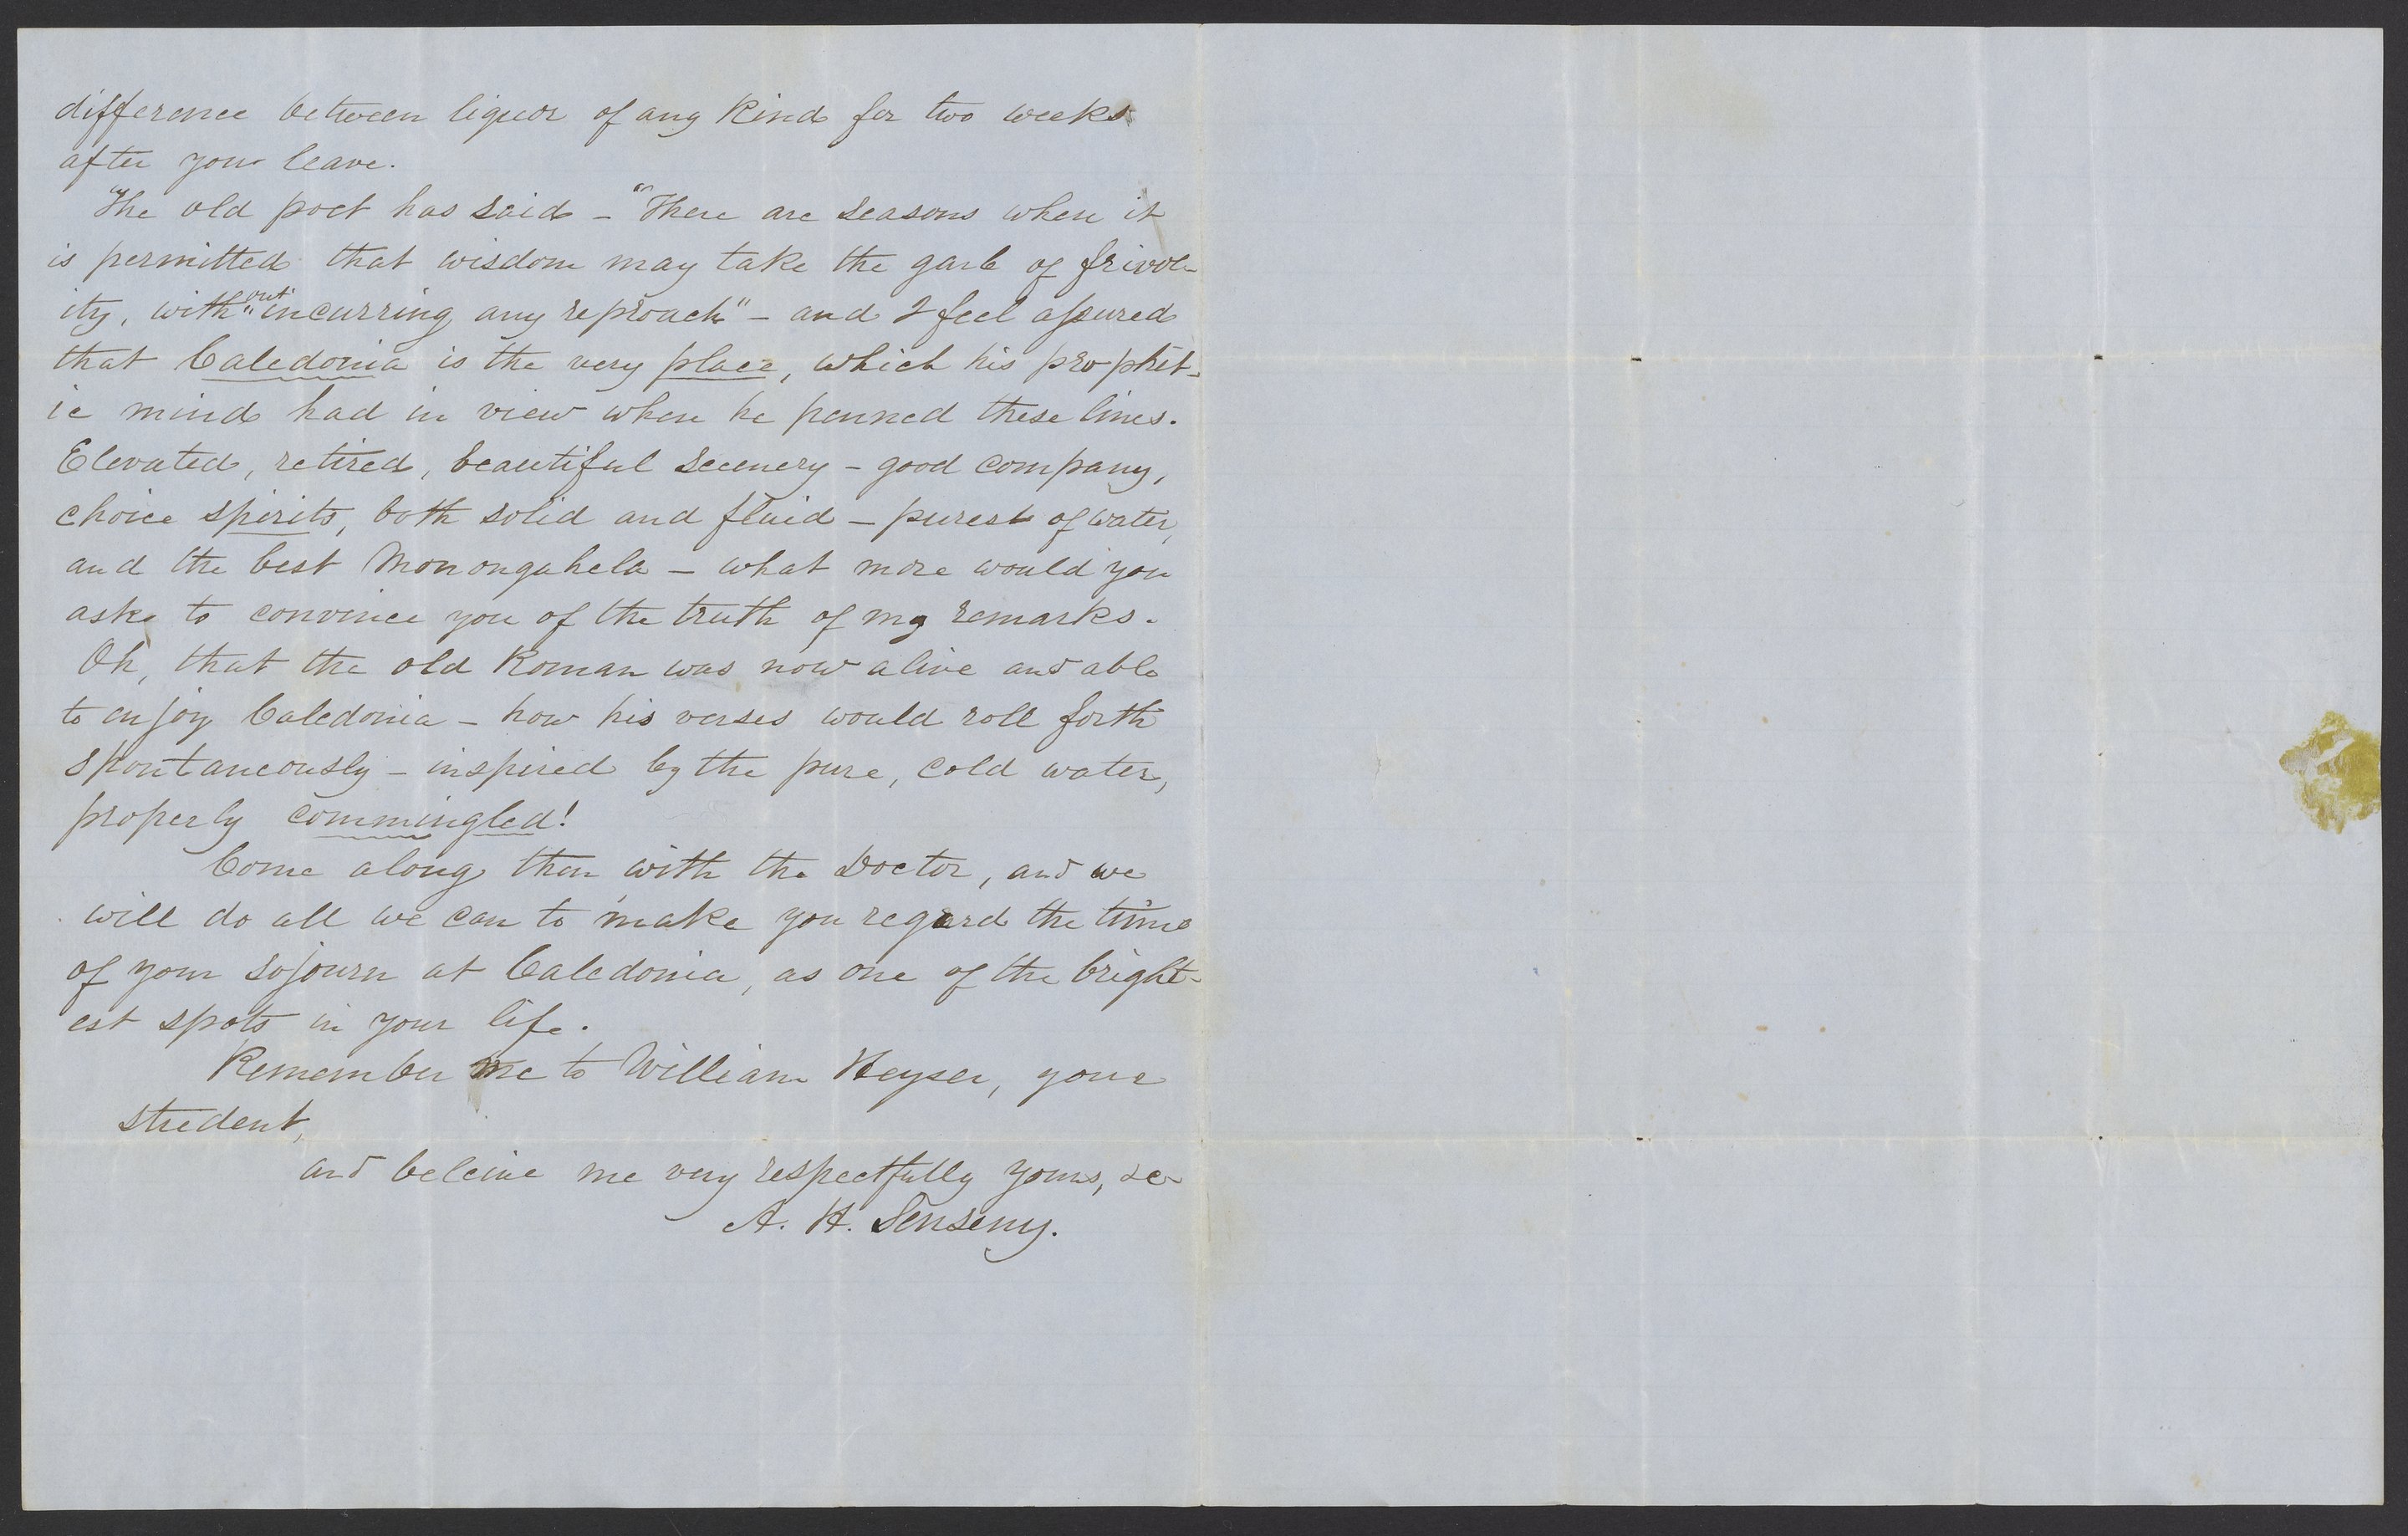 difference between liquor of any kind for two weeks
after you leave.
"The old poet has said - "There are seasons when it
is permitted that wisdom may take the garb of frivol-
ity, without incurring any reproach" - and I feel assured
that Caledonia is the very place, which his prophet-
ic mind had in view when he penned these lines.
Elevated, retired, beautiful scenery - good company,
choice spirits, both solid and fluid - purest of water,
and the best Monongahela - what more would you
ask to convince you of the truth of my remarks.
Oh, that the old Roman was now alive and able
to enjoy Caledonia - how his verses would roll forth
spontaneously - inspired by the pure, cold water,
properly commingled!
Come along then with the Doctor, and we
will do all we can to make you regard the time
of your sojourn at Caledonia, as one of the bright-
est spots in your life.
Remember me to William Heyser, your
student,
and beleive me very respectfully yours, &c
A. H. Senseny.